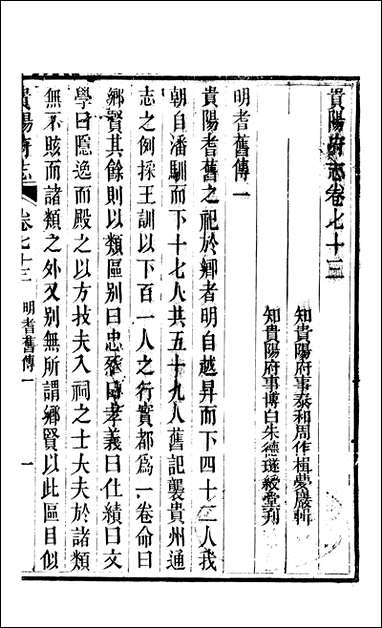 貴陽府志卷七十三
知貴陽府事泰和周作楫夢巖輯
知貴陽府事博白朱德璲綬堂刊
明耆舊傳一
貴陽耆舊之祀於鄉者明自越昇而下四十二人我
朝自潘馴而下十七人共五十九人舊記襲貴州通
志之例採王訓以下百一人之行實都爲一卷命曰
鄉賢其餘則以類區别曰忠烝曰孝義曰仕績曰文
學曰隱逸而殿之以方技夫入祠之士大夫於諸類
無不賅而諸類之外又别無所謂鄉賢以此區目似
貴陽府志 卷七十三 明耆舊傳一 一